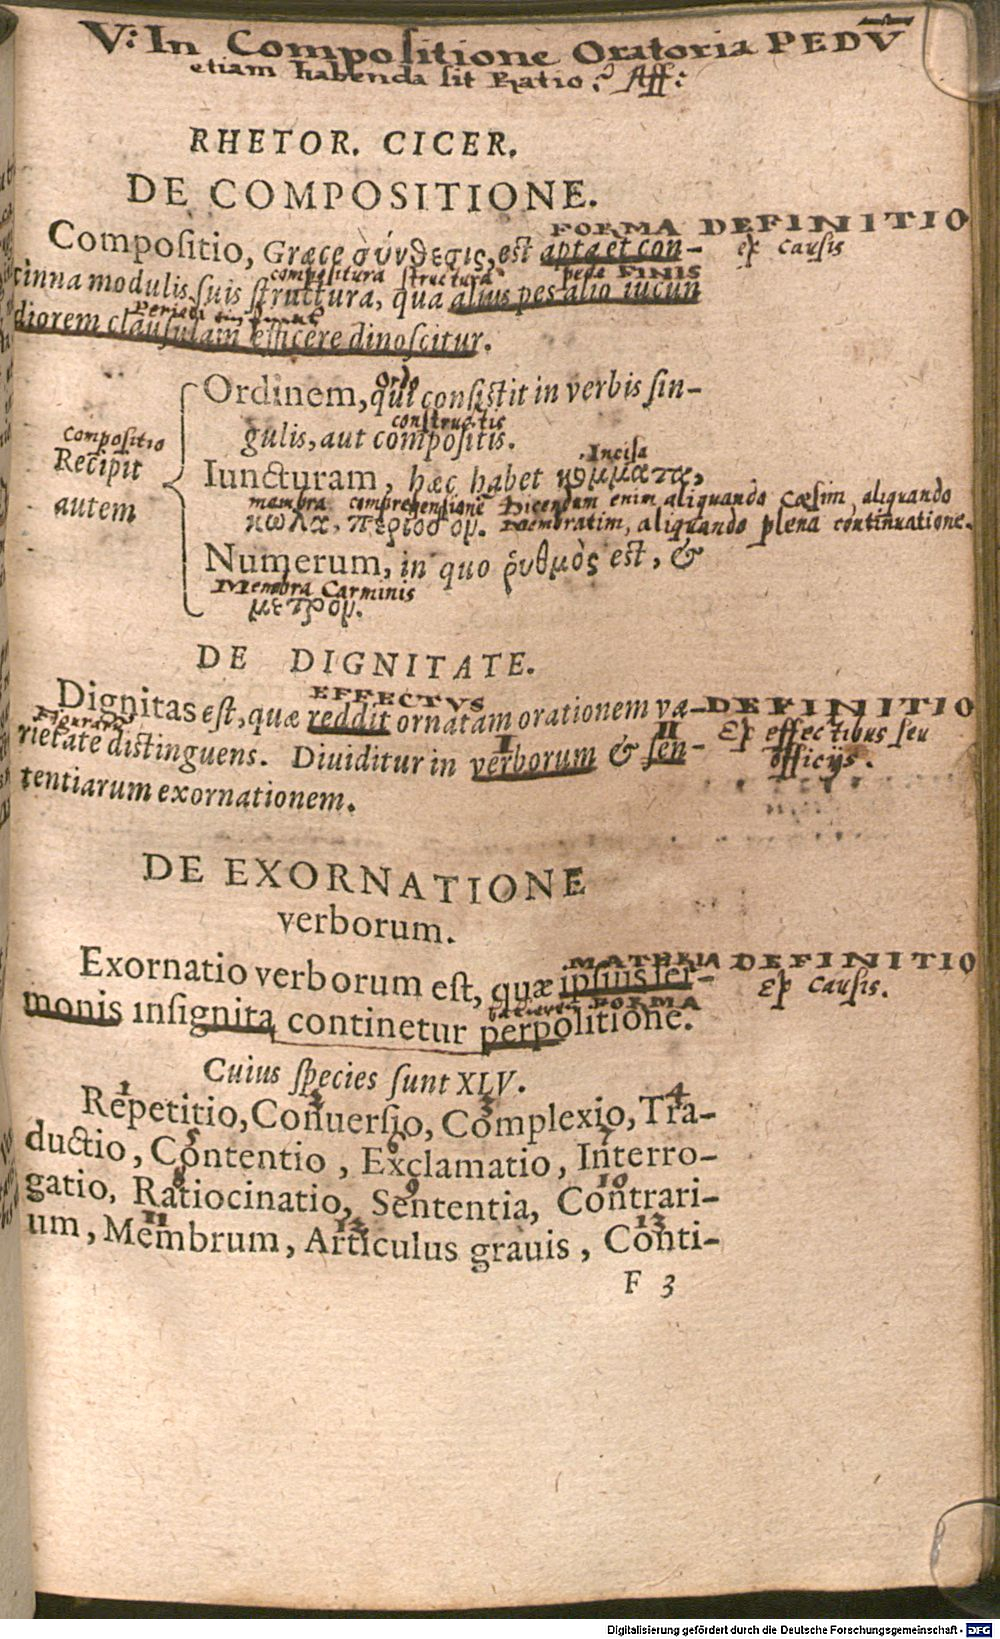 V: In Compositione Oratoria PEDV̄
etiam habenda sit Ratio? Aff:
RHETOR. CICER.
DE COMPOSITIONE.
FORMA DEFINITIO
Compositio, Græce σύνθεσις, est apta et con-
ex causis
compositura structura pede FINIS
cinna modulis suis structura, qua alius pes alio iucun
Periodi
diorem clausulam efficere dinoscitur.
Ordinem, qui consistit in verbis sin-
Ordo
constructis
gulis, aut compositis.
Compositio
Recipit
autem
Incisa
Iuncturam, hæc habet κόμματα,
membra comprehensione Dicendum enim aliquando Cæsim, aliquando
κῶλα, περίοδον. membratim, aliquando plena continuatione.
Numerum, in quo ῥυθμὸς est, &
Membra Carminis
μέτρον.
DE DIGNITATE.
EFFECTVS
Dignitas est, quæ reddit ornatam orationem va-
DEFINITIO
Ex effectibus seu
officijs.
Figurarū
rietate distinguens. Diuiditur in verborum & sen-
I II
tentiarum exornationem.
DE EXORNATIONE
verborum.
MATERIA DEFINITIO
Exornatio verborum est, quæ ipsius ser-
Ex Causis.
FORMA
monis insignita continetur perpolitione.
Cuius species sunt XLV.
1 2 3 4
Repetitio, Conuersio, Complexio, Tra-
5 6 7
ductio, Contentio, Exclamatio, Interro-
8 9 10
gatio, Ratiocinatio, Sententia, Contrari-
11 12 13
um, Membrum, Articulus grauis, Conti-
F 3
Digitalisierung gefördert durch die Deutsche Forschungsgemeinschaft - DFG